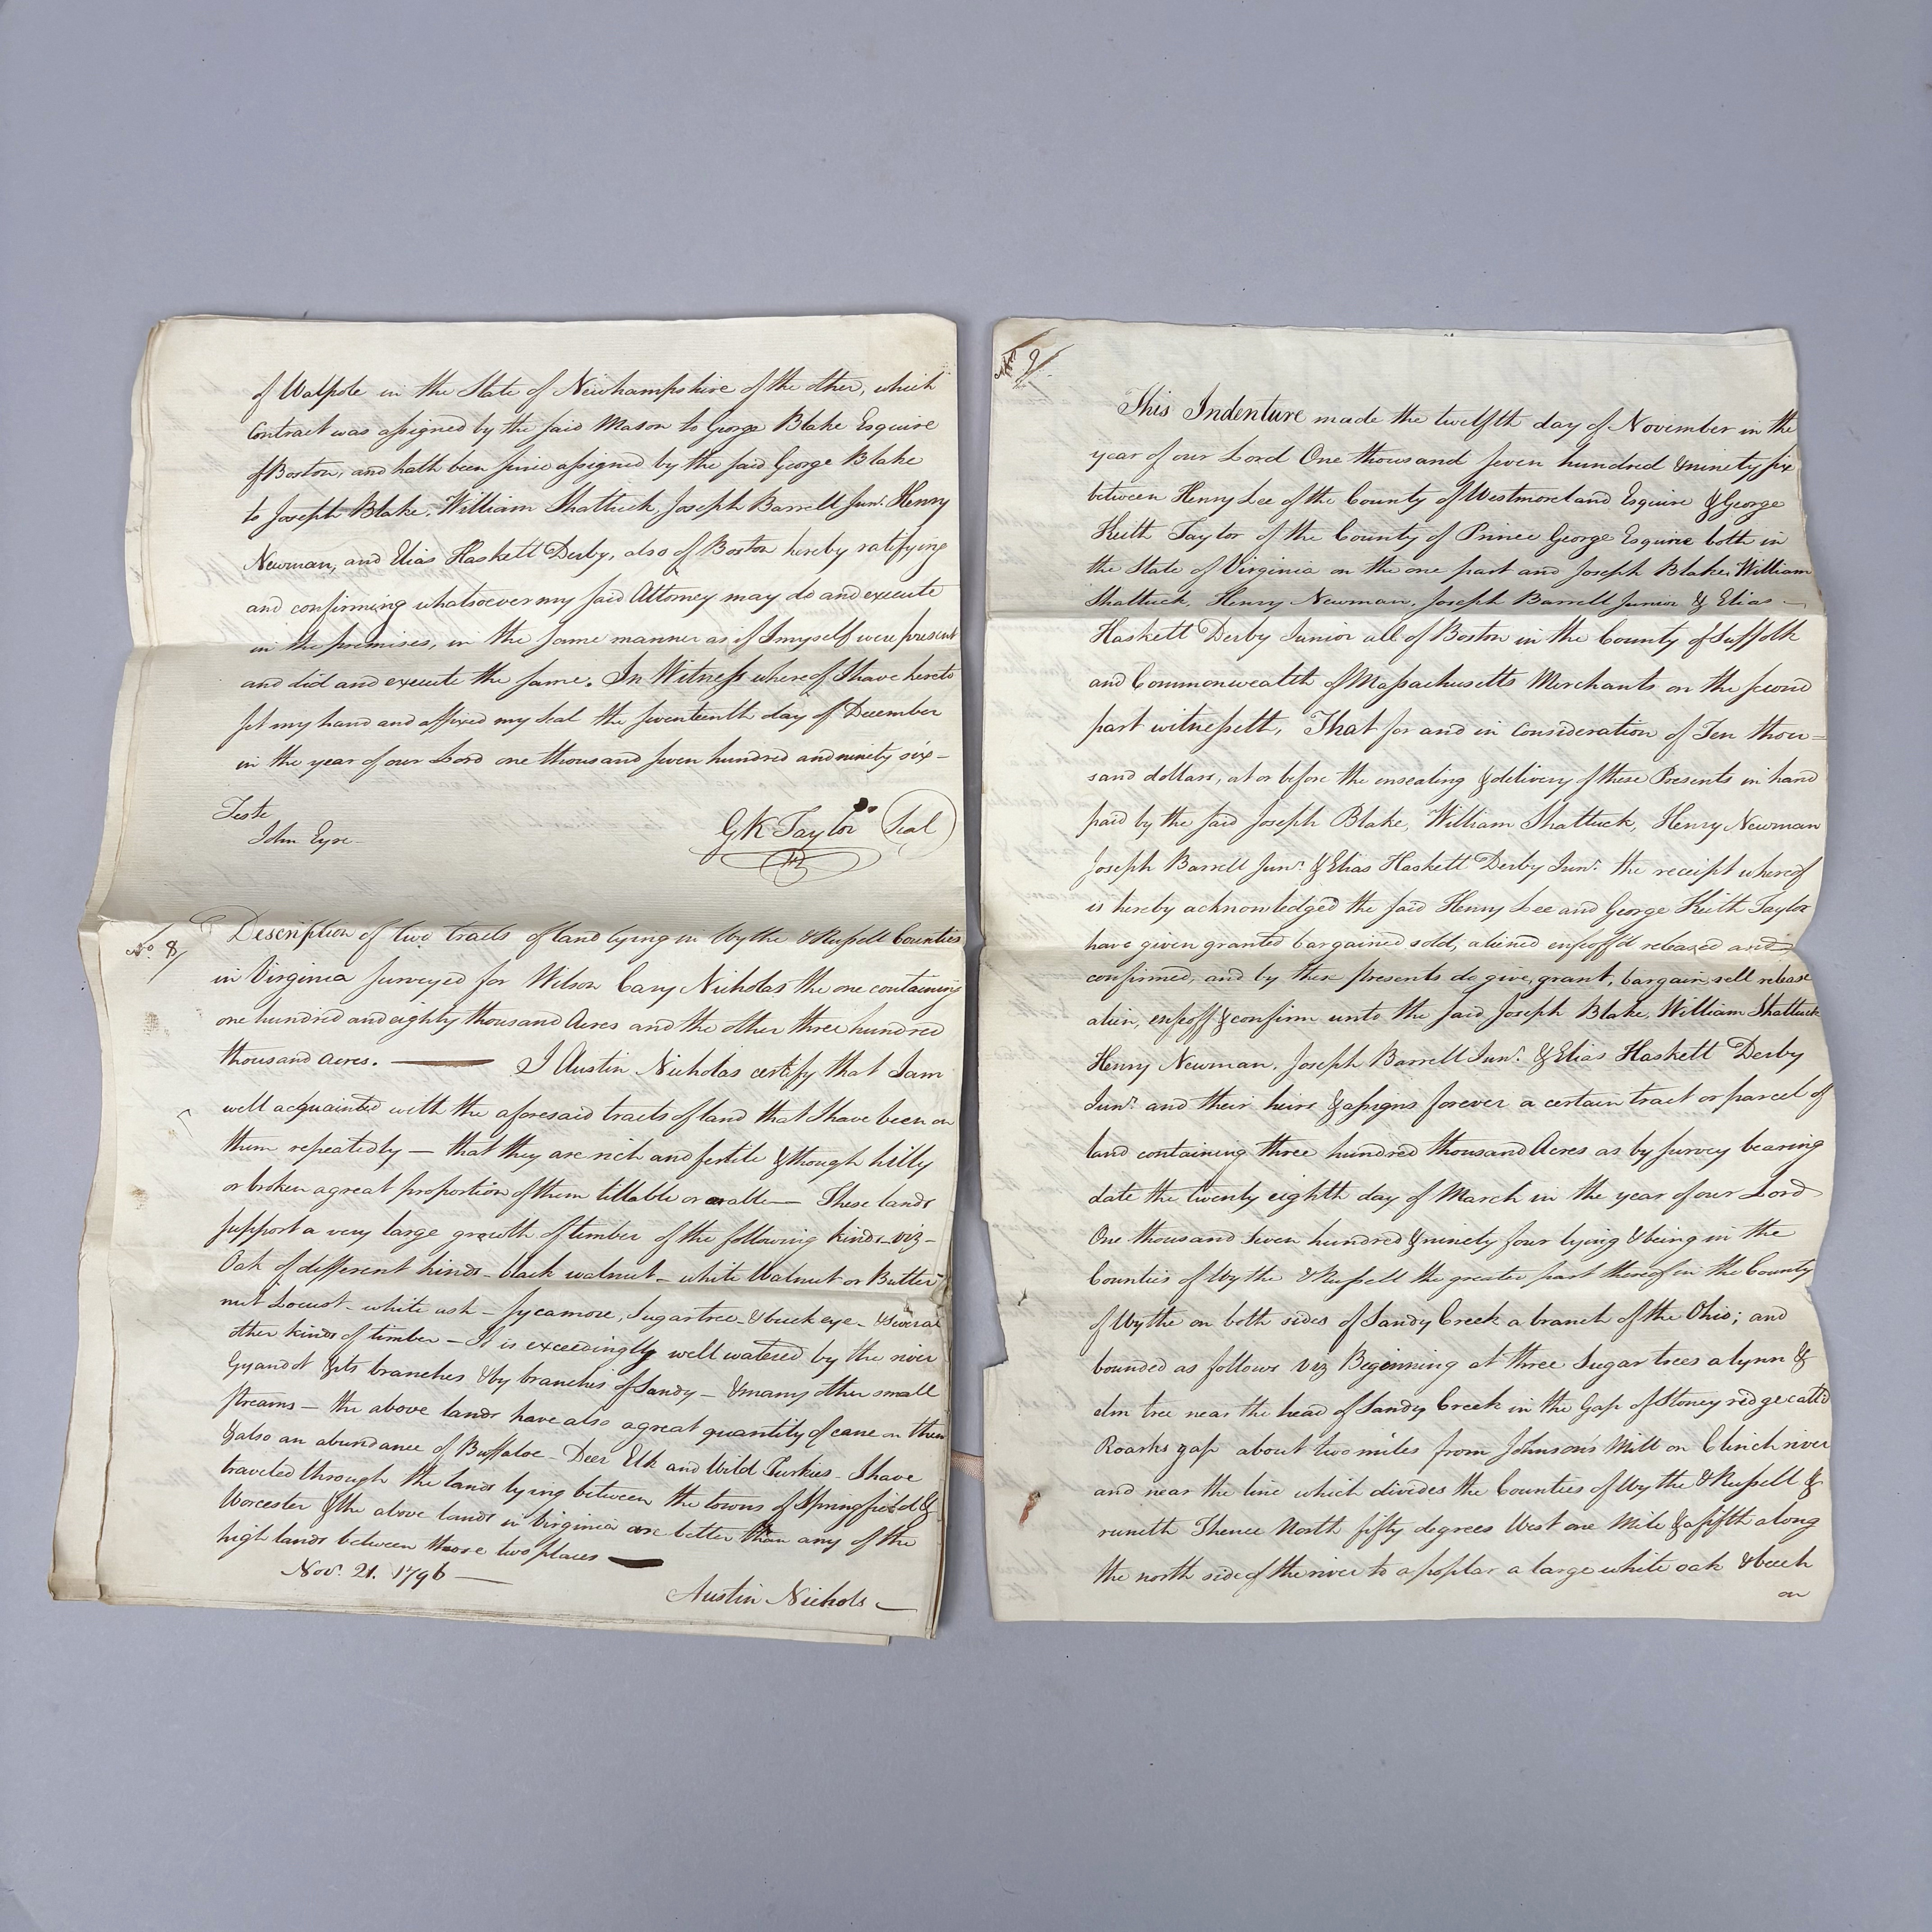 of Walpole in the State of Newhampshire of the other, which
Contract was assigned by the said Mason to George Blake Esquire
of Boston, and hath been since assigned by the said George Blake
to Joseph Blake, William Shattuck, Joseph Barrell Junr. Henry
Newman, and Elias Haskett Derby, also of Boston hereby ratifying
and confirming whatsoever my said Attorney may do and execute
in the premises, in the same manner as if I myself were present
and did and execute the same. In Witness whereof I have hereto
set my hand and affixed my Seal the seventeenth day of December
in the year of our Lord one thousand seven hundred and ninety six—
Teste
John Eyre—
GK Taylor Seal
No. 8/
Description of two tracts of land lying in Wythe & Russell Counties
in Virginia surveyed for Wilson Cary Nicholas the one containing
one hundred and eighty thousand Acres and the other three hundred
thousand acres. — I Austin Nicholas certify that I am
well acquainted with the aforesaid tracts of land that I have been on
them repeatedly — that they are rich and fertile & though hilly
or broken a great proportion of them tillable or arable — These lands
support a very large growth of timber of the following kinds—viz—
Oak of different kinds—black walnut—white Walnut or Butter
nut Locust—white ash—Sycamore, Sugartree—& buckeye—& several
other kinds of timber—It is exceedingly well watered by the river
Gyandot & its branches & by branches of Sandy—& many other small
streams—the above lands have also a great quantity of cane on them
& also an abundance of Buffaloe—Deer Elk and Wild Turkies—I have
traveled through the lands lying between the towns of Springfield &
Worcester & the above lands in Virginia are better than any of the
high lands between those two places—
Nov. 21. 1796—
Austin Nichols—
No. 9/.
This Indenture made the twelfth day of November in the
year of our Lord One thousand seven hundred & ninety six
between Henry Lee of the County of Westmoreland Esquire & George
Keith Taylor of the County of Prince George Esquire both in
the State of Virginia on the one part and Joseph Blake, William
Shattuck, Henry Newman, Joseph Barrell Junior & Elias—
Haskett Derby Junior all of Boston in the County of Suffolk
and Commonwealth of Massachusetts Merchants on the second
part witnesseth, That for and in consideration of Ten thou=
sand dollars, at or before the ensealing & delivery of these Presents in hand
paid by the said Joseph Blake, William Shattuck, Henry Newman
Joseph Barrell Junr. & Elias Haskett Derby Junr. the receipt whereof
is hereby acknowledged the said Henry Lee and George Keith Taylor
have given granted bargained sold, aliened enfeoff'd released and
confirmed, and by these presents do give, grant, bargain sell release
alien, enfeoff & confirm unto the said Joseph Blake, William Shattuck
Henry Newman, Joseph Barrell Junr. & Elias Haskett Derby
Junr. and their heirs & assigns forever a certain tract or parcel of
land containing three hundred thousand Acres as by survey bearing
date the twenty eighth day of March in the year of our Lord
One thousand seven hundred & ninety four lying & being in the
Counties of Wythe & Russell the greater part thereof in the County
of Wythe on both sides of Sandy Creek a branch of the Ohio; and
bounded as follows viz Beginning at three Sugar trees a lynn &
elm tree near the head of Sandy Creek in the Gap of Stoney ridge call'd
Roarks gap about two miles from Johnson's Mill on Clinch river
and near the line which divides the Counties of Wythe & Russell &
runneth Thence North fifty degrees West one Mile & a fifth along
the north side of the river to a poplar a large white oak & beech
on